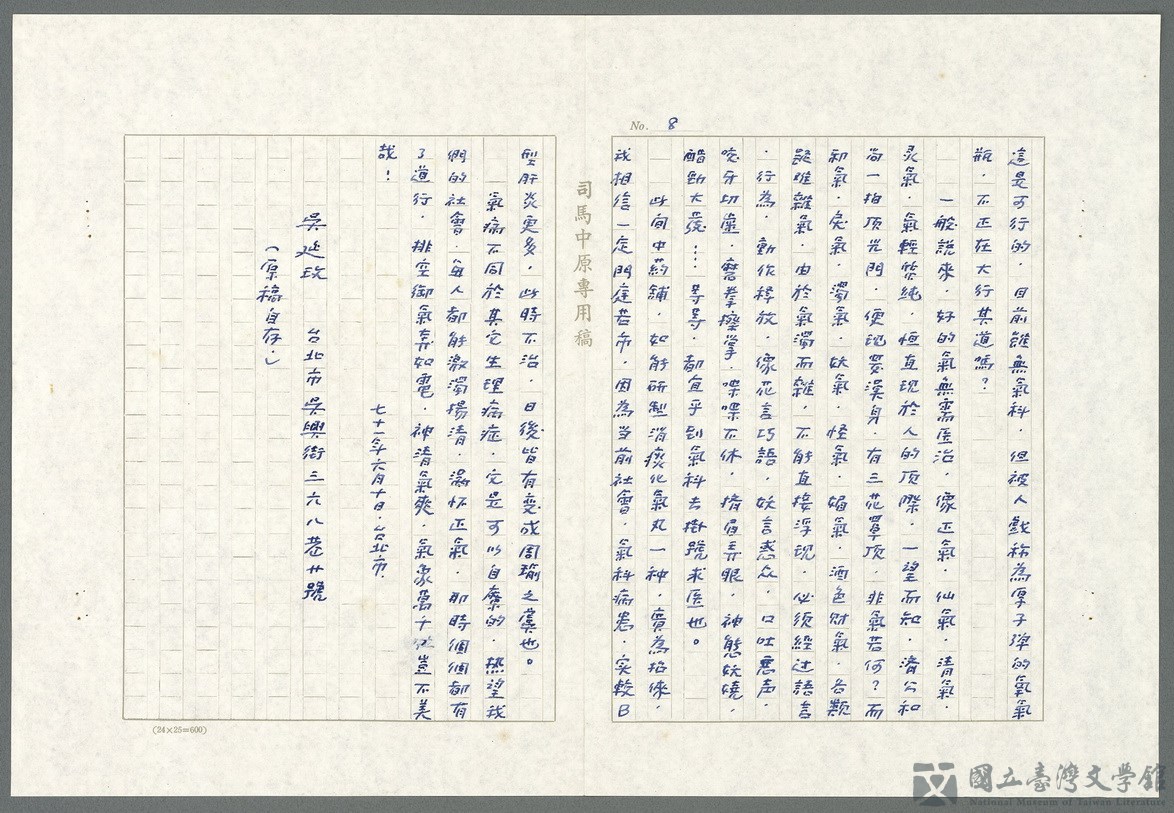 No. 8
這是可行的．目前雖無氣科．但被人戲稱為原子彈的氧氣
瓶．不正在大行其道嗎？
一般說來．好的氣無需医治．像正氣．仙氣．清氣．
灵氣．氣輕質純．恒直現於人的頂際．一望而知．濟公和
尚一拍頂光門．便現羅漢身．有三花罩頂．非氣若何？而
邪氣．兇氣．濁氣．妖氣．怪氣．媚氣．酒色財氣．各類
雜氣．由於氣濁而雜．不能直接浮現．必須經过語言
．行為．動作釋放．像花言巧語．妖言惑众．口吐惡声．
咬牙切齒．磨拳擦掌．喋喋不休．擠眉弄眼．神態妖嬈．
醋勁大發……等等．都宜乎到氣科去掛號求医也。
此间中葯舖．如能研製消痰化氣丸一种．賣為招徠．
我相信一定門庭若市．因為当前社會．氣科病患．实較B
司馬中原專用稿
型肝炎更多．此時不治．日後皆有变成周瑜之虞也。
氣病不同於其它生理病症．它是可以自療的．热望我
們的社會．每人都能激濁揚清．滿怀正氣．那時個個都有
了道行．排空御氣奔如電．神清氣爽．氣象萬千．豈不美
哉！
七十一年六月十日．台北市．
吳延玫　台北市吳興街三六八巷廿號
（原稿自存．）
(24×25=600)
國立臺灣文學館
National Museum of Taiwan Literature